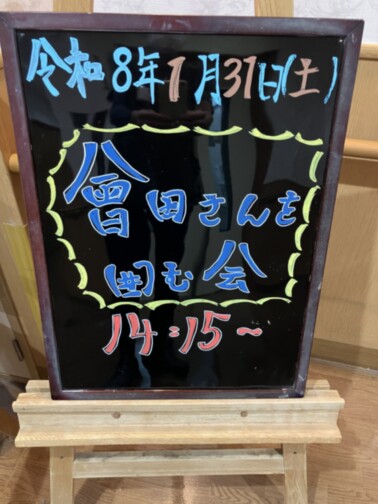 令和8年1月31日(土)
曾田さんを
囲む会
14:15〜